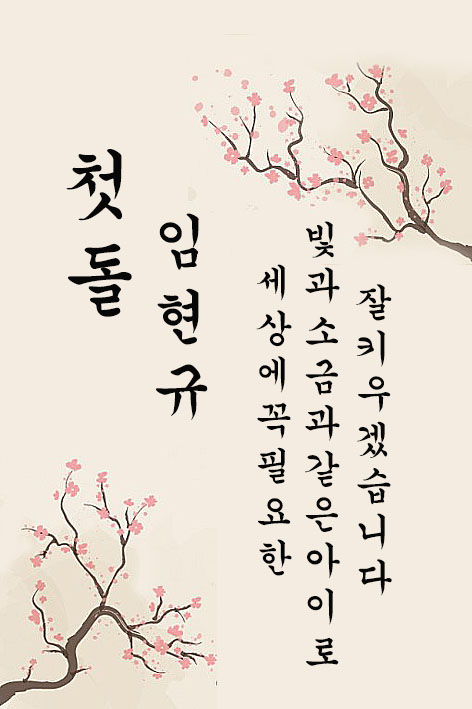 첫돌
임현규
세상에꼭필요한
빛과소금과같은아이로
잘키우겠습니다